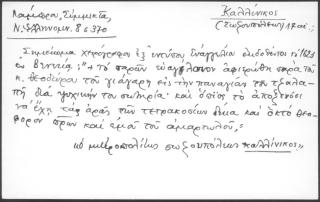 Λάμπρου, Σύμμικτα,
Ν. Ἑλληνομν. 8 σ 370
Καλλίνικος
(Σωζουπόλεως) 18 αἰ.
Σημείωμα χειρόγραφον ἐξ ἐντύπου Εὐαγγελίου ἐκδοθέντος τῷ 1683
ἐν Βενετίᾳ: "+ τὸ παρὸν εὐαγγέλιον ἀφιερώθη παρὰ τοῦ
κ. Θεοδώρου τοῦ γιάγαρη εἰς τὴν παναγίαν
διὰ ψυχικήν του σωτηρία καὶ ὁποῖος τὸ ἀποξενώσει
νὰ ἔχῃ τὰς ἀρὰς τῶν τετρακοσίων δέκα καὶ ὀκτὼ θεο
φόρων πρων καὶ ἐμοῦ τοῦ ἁμαρτωλοῦ,
ὁ μητροπολίτης σωζουπόλεως καλλίνικος»